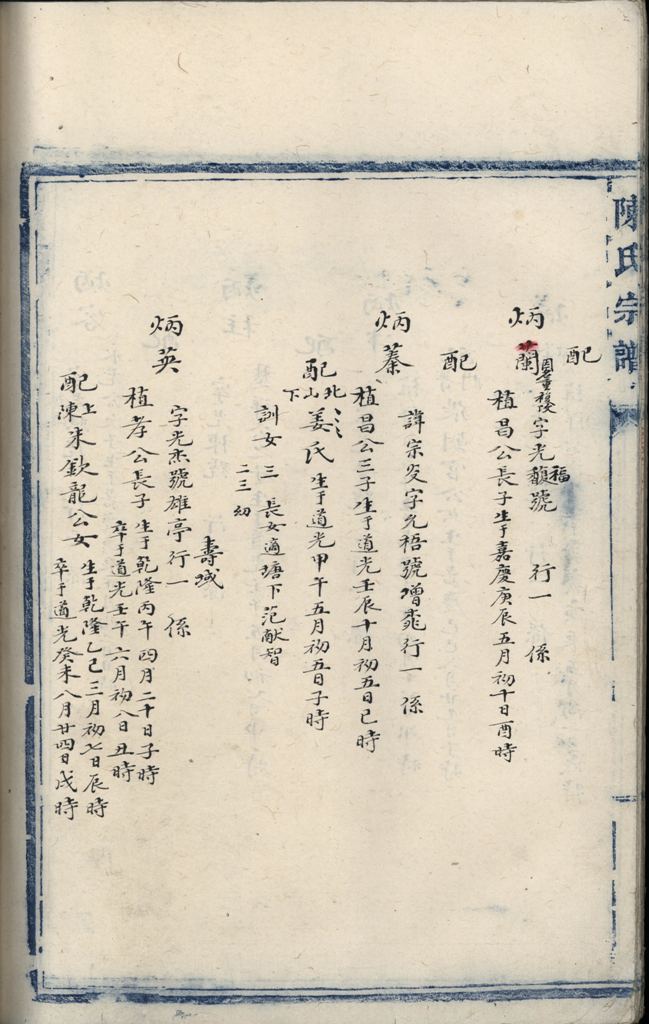 陳氏宗譜
配
炳蘭 字光馥號 福 行一 係
植昌公長子生于嘉慶庚辰五月初十日酉時
配
炳蓁 諱宗炎字允梧號增 行一 係
植昌公三子生于道光壬辰十月初五日巳時
配北山下姜氏生于道光甲午五月初五日子時
訓女三 長女適塘下范献智
二三幼
壽域
炳英 字光杰號雄亭行一 係
植孝公長子 生于乾隆丙午四月二十日子時
卒于道光壬午六月初八日丑時
配上陳朱欽龍公女 生于乾隆乙巳三月初七日辰時
卒于道光癸未八月廿四日戌時